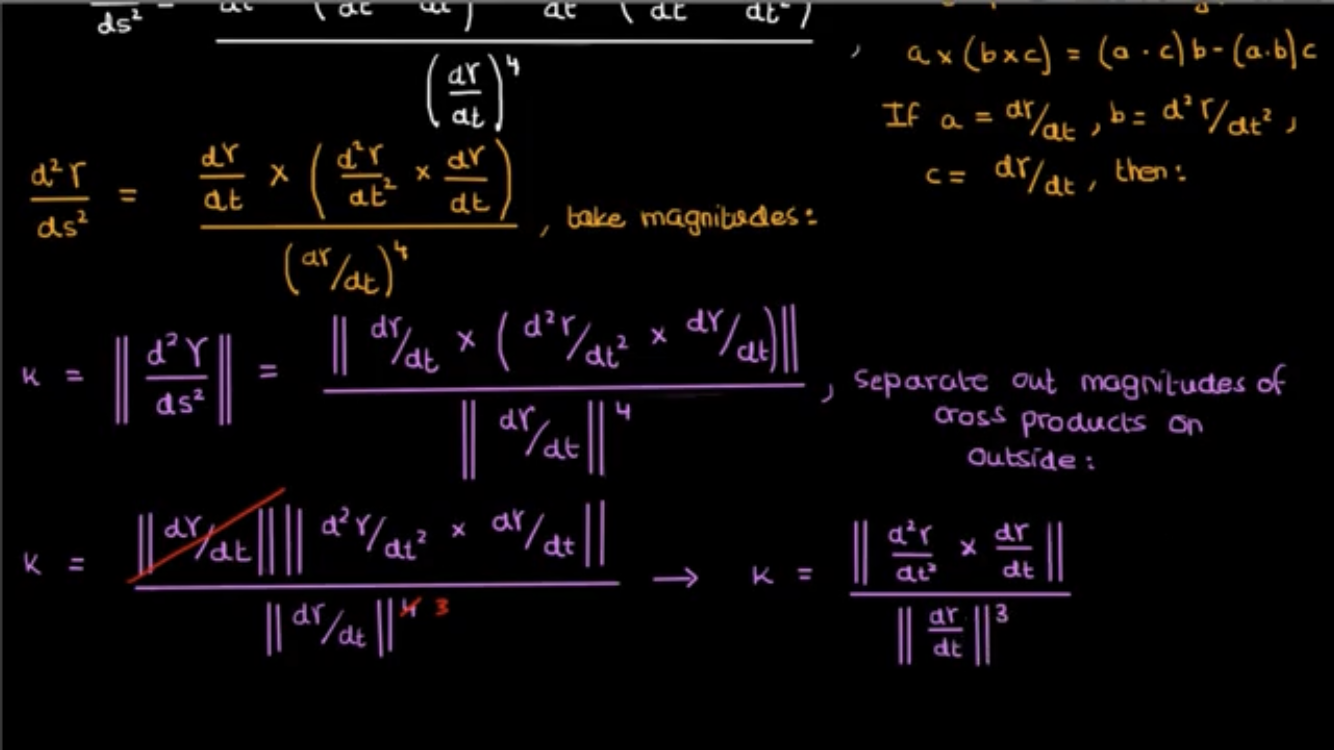 a × (b × c) = (a · c) b - (a · b) c
If a = dr/dt , b = d²r/dt² ,
c = dr/dt , then :
d²r/ds² = dr/dt × ( d²r/dt² × dr/dt ) / (dr/dt)⁴ , take magnitudes :
κ = || d²r/ds² || = || dr/dt × ( d²r/dt² × dr/dt ) || / || dr/dt ||⁴ , separate out magnitudes of
cross products on
outside :
κ = || dr/dt || || d²r/dt² × dr/dt || / || dr/dt ||⁴ 3 → κ = || d²r/dt² × dr/dt || / || dr/dt ||³